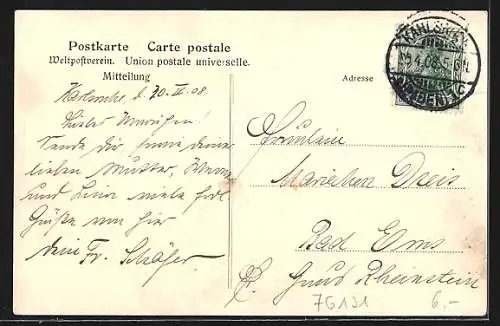 Postkarte Carte postale
Weltpostverein. Union postale universelle.
Mitteilung
Adresse
Karlsruhe, d. 20. IV. 08.
Liebes Mariechen!
Sende dir sowie deiner
lieben Mutter,
und viele herzl.
Grüße von hier
dein Fr. Schäfer.
Fräulein
Mariechen Dreis
Bad Ems
Haus Rheinstein
76131
6.-